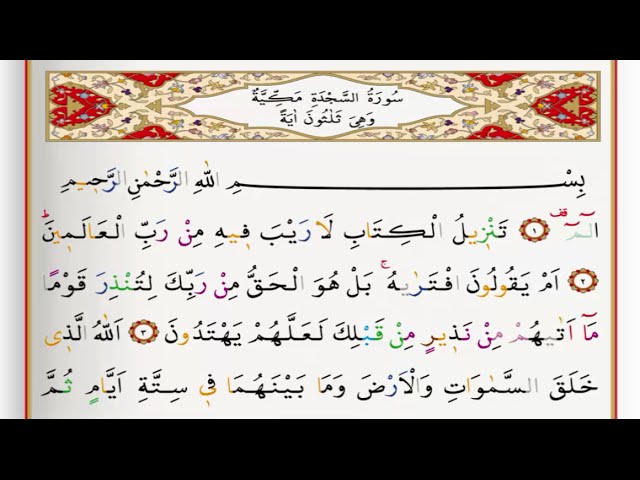 سُورَةُ السَّجْدَةِ مَكِّيَّةٌ
وَهِيَ ثَلٰثُونَ اٰيَةً
بِسْمِ اللّٰهِ الرَّحْمٰنِ الرَّحٖيمِ
الٓمٓ ۠ ﴿١﴾ تَنْزٖيلُ الْكِتَابِ لَا رَيْبَ فٖيهِ مِنْ رَبِّ الْعَالَمٖينَ ط
﴿٢﴾ اَمْ يَقُولُونَ افْتَرٰيهُ ۚ بَلْ هُوَ الْحَقُّ مِنْ رَبِّكَ لِتُنْذِرَ قَوْمًا
مَٓا اَتٰيهُمْ مِنْ نَذٖيرٍ مِنْ قَبْلِكَ لَعَلَّهُمْ يَهْتَدُونَ ﴿٣﴾ اَللّٰهُ الَّذٖى
خَلَقَ السَّمٰوَاتِ وَالْاَرْضَ وَمَا بَيْنَهُمَا فٖى سِتَّةِ اَيَّامٍ ثُمَّ